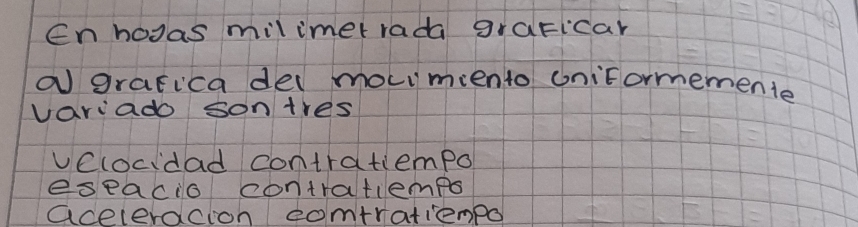 En hojas milimetrada graficar
a) grafica del movimiento uniformemente
variado son tres
velocidad contratiempo
espacio contratiempo
aceleracion comtratiempo